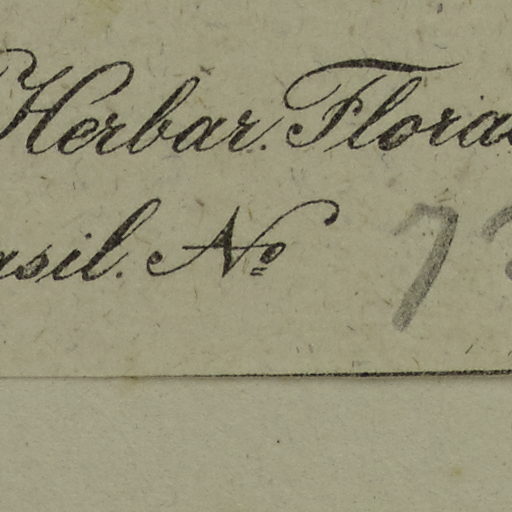 Herbar. Florae
asil. No 7